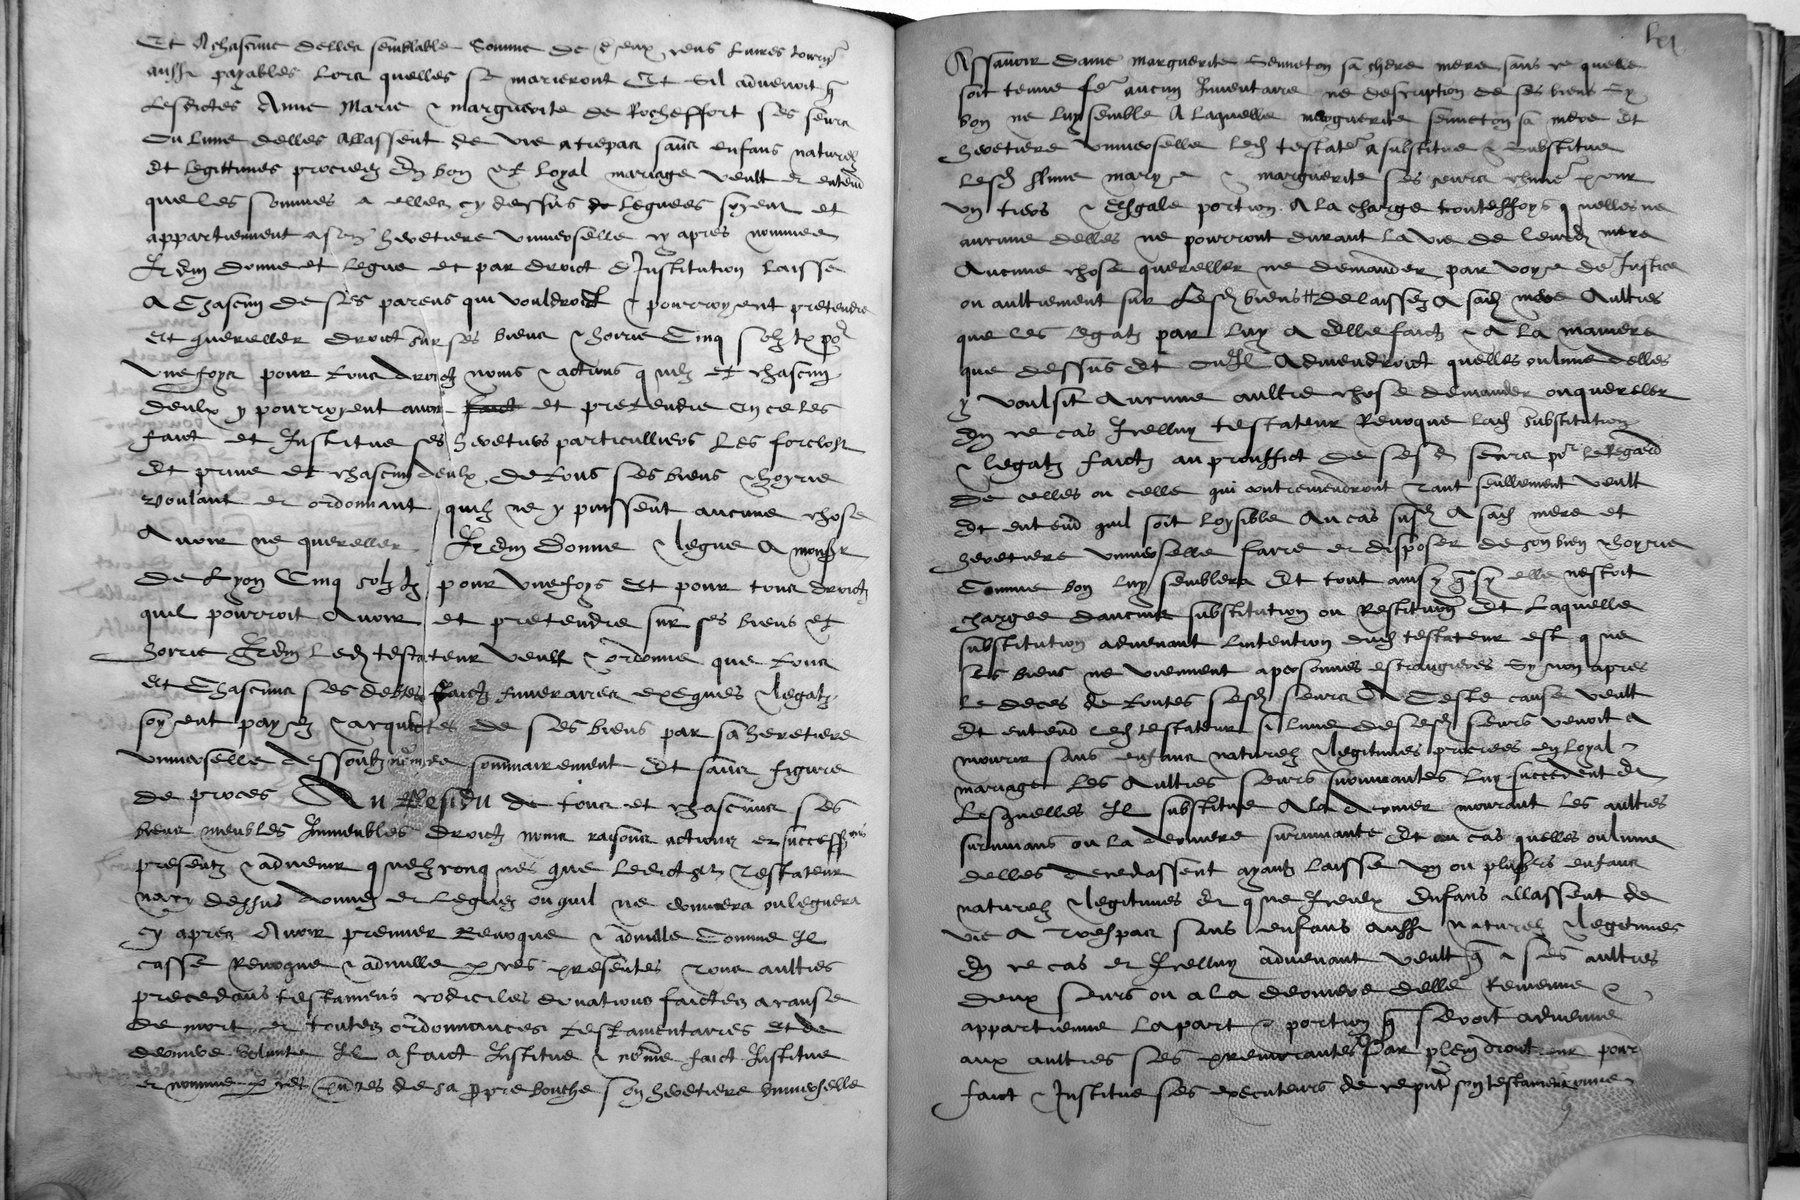 Et A chascune delles semblable Somme de deux cens livres tourn
aussi payables Lors quelles se marieront Et Sil advenoit q
Lesdictes Anne Marie & marguerite de Rocheffort ses seurs
Ou Lune delles Allassent de vie a trepas sans enfans naturelz
Et Legittimes procreez En bon et Loyal mariage veult et entend
que les sommes a elles cy dessus leguees soyent et
appartiennent a son heretiere universelle cy apres nommee
Item donne et Legue et par droict dInstitution Laisse
A Chascun de ses parens qui vouldroit & pourroyent pretendre
Et quereller droict sur ses biens & horrie Cinq solz tz po
Une foys pour tous droictz noms & actions quelz et chascun
deulx y pourroyent avoir et pretendre En ce les
faict et Institue ses heretiers particulliers Les forclost
Et prive et chascun deulx de tous ses biens & hoyrie
voulant et ordonnant quilz ne y puissent aucune chose
Avoir ne quereller Item donne & legue A monsr
de Lyon Cinq solz tz pour une foys Et pour tous droictz
quil pourroit Avoir et pretendre sur ses biens et
horrie Item Led testateur veult & ordonne que tous
Et Chascuns ses debtes faictz funeraires exeques & legatz
soyent payez & acquittes de ses biens par sa heretiere
universelle dessoubz nommee sommairement Et sans figure
de proces Au Residu de tous et chascuns ses
biens meubles Immeubles droictz noms raisons actions et successions
presentz & advenir quelzconques que Ledict Testateur
na cy dessus donnez et Leguez ou quil ne donnera ou leguera
Cy apres Avoir premier Revoque & adnulle Comme Il
casse Revoque & adnulle p ces presentes & tous aultres
precedans testamens codicilles donations faictes a cause
de mort et toutes ordonnances testamentaires Et de
derniere volunte Il a faict Institue & nomme faict Institue
et nomme p ces pntes de sa propre bouche son heretiere universelle
Assavoir Dame marguerite Senneton sa chere mere sans ce quelle
soit tenue fe aucun Inventaire ne description de ses biens Sy
bon ne Luy semble A Laquelle marguerite senneton sa mere Et
heretiere universelle Led testate a substitue & Substitue
Lesd Anne marye & marguerite ses seurs chune pour
un tiers & Esgale portion A la charge touteffoys quelles ne
aucune delles ne pourront durant La vie de leurd mere
Aucune chose quereller ne demander par voye de Justice
ou aultrement sur Lesd biens delaissez A sad mere Aultres
que les Legatz par Luy A Elle faictz & A La maniere
que dessus Et ou Il Adviendroict quelles ou lune delles
y voulsit Aucune aultre chose demander ou quereler
En ce cas Icelluy testateur Revoque Lad substitution
& legatz faictz au prouffict de sesd seurs po Le Regard
de celles ou celle qui contreviendront tant seullement veult
Et entend quil soit Loysible Au cas susd A sad mere et
heretiere universelle faire et disposer de son bien & hoyrie
Comme bon Luy semblera Et tout ainsy q sy elle nestoit
chargee daucune substitution ou Restitution Et Laquelle
substitution advenant Lintention dud testateur est que
ses biens ne viennent a personnes estrangieres Sy non apres
Le deces de toutes sesd seurs A Ceste cause veult
Et entend Led testateur si Lune de sesd seurs venoit a
mourir sans enfans naturelz & legitimes procrees en loyal
mariage Les Aultres seurs survivantes Luy succedent Et
Lesquelles Il substitue A La dernier mourant Les aultres
survivans ou La derniere survivante Et au cas quelles ou lune
delles decedassent ayantz Laisse Ung ou plusrs enfans
naturelz & legitimes Et que Iceulx Enfans allassent de
vie A trespas sans enfans aussi naturelz & legitimes
En ce cas et Icelluy advenant veult q a ses aultres
deux seurs ou a La derniere delle Revienne &
appartienne La part & portion q seroit advenue
aux aultres ses premourantes Par plein droict
faict & Institue ses executeurs de ce pnt son testament